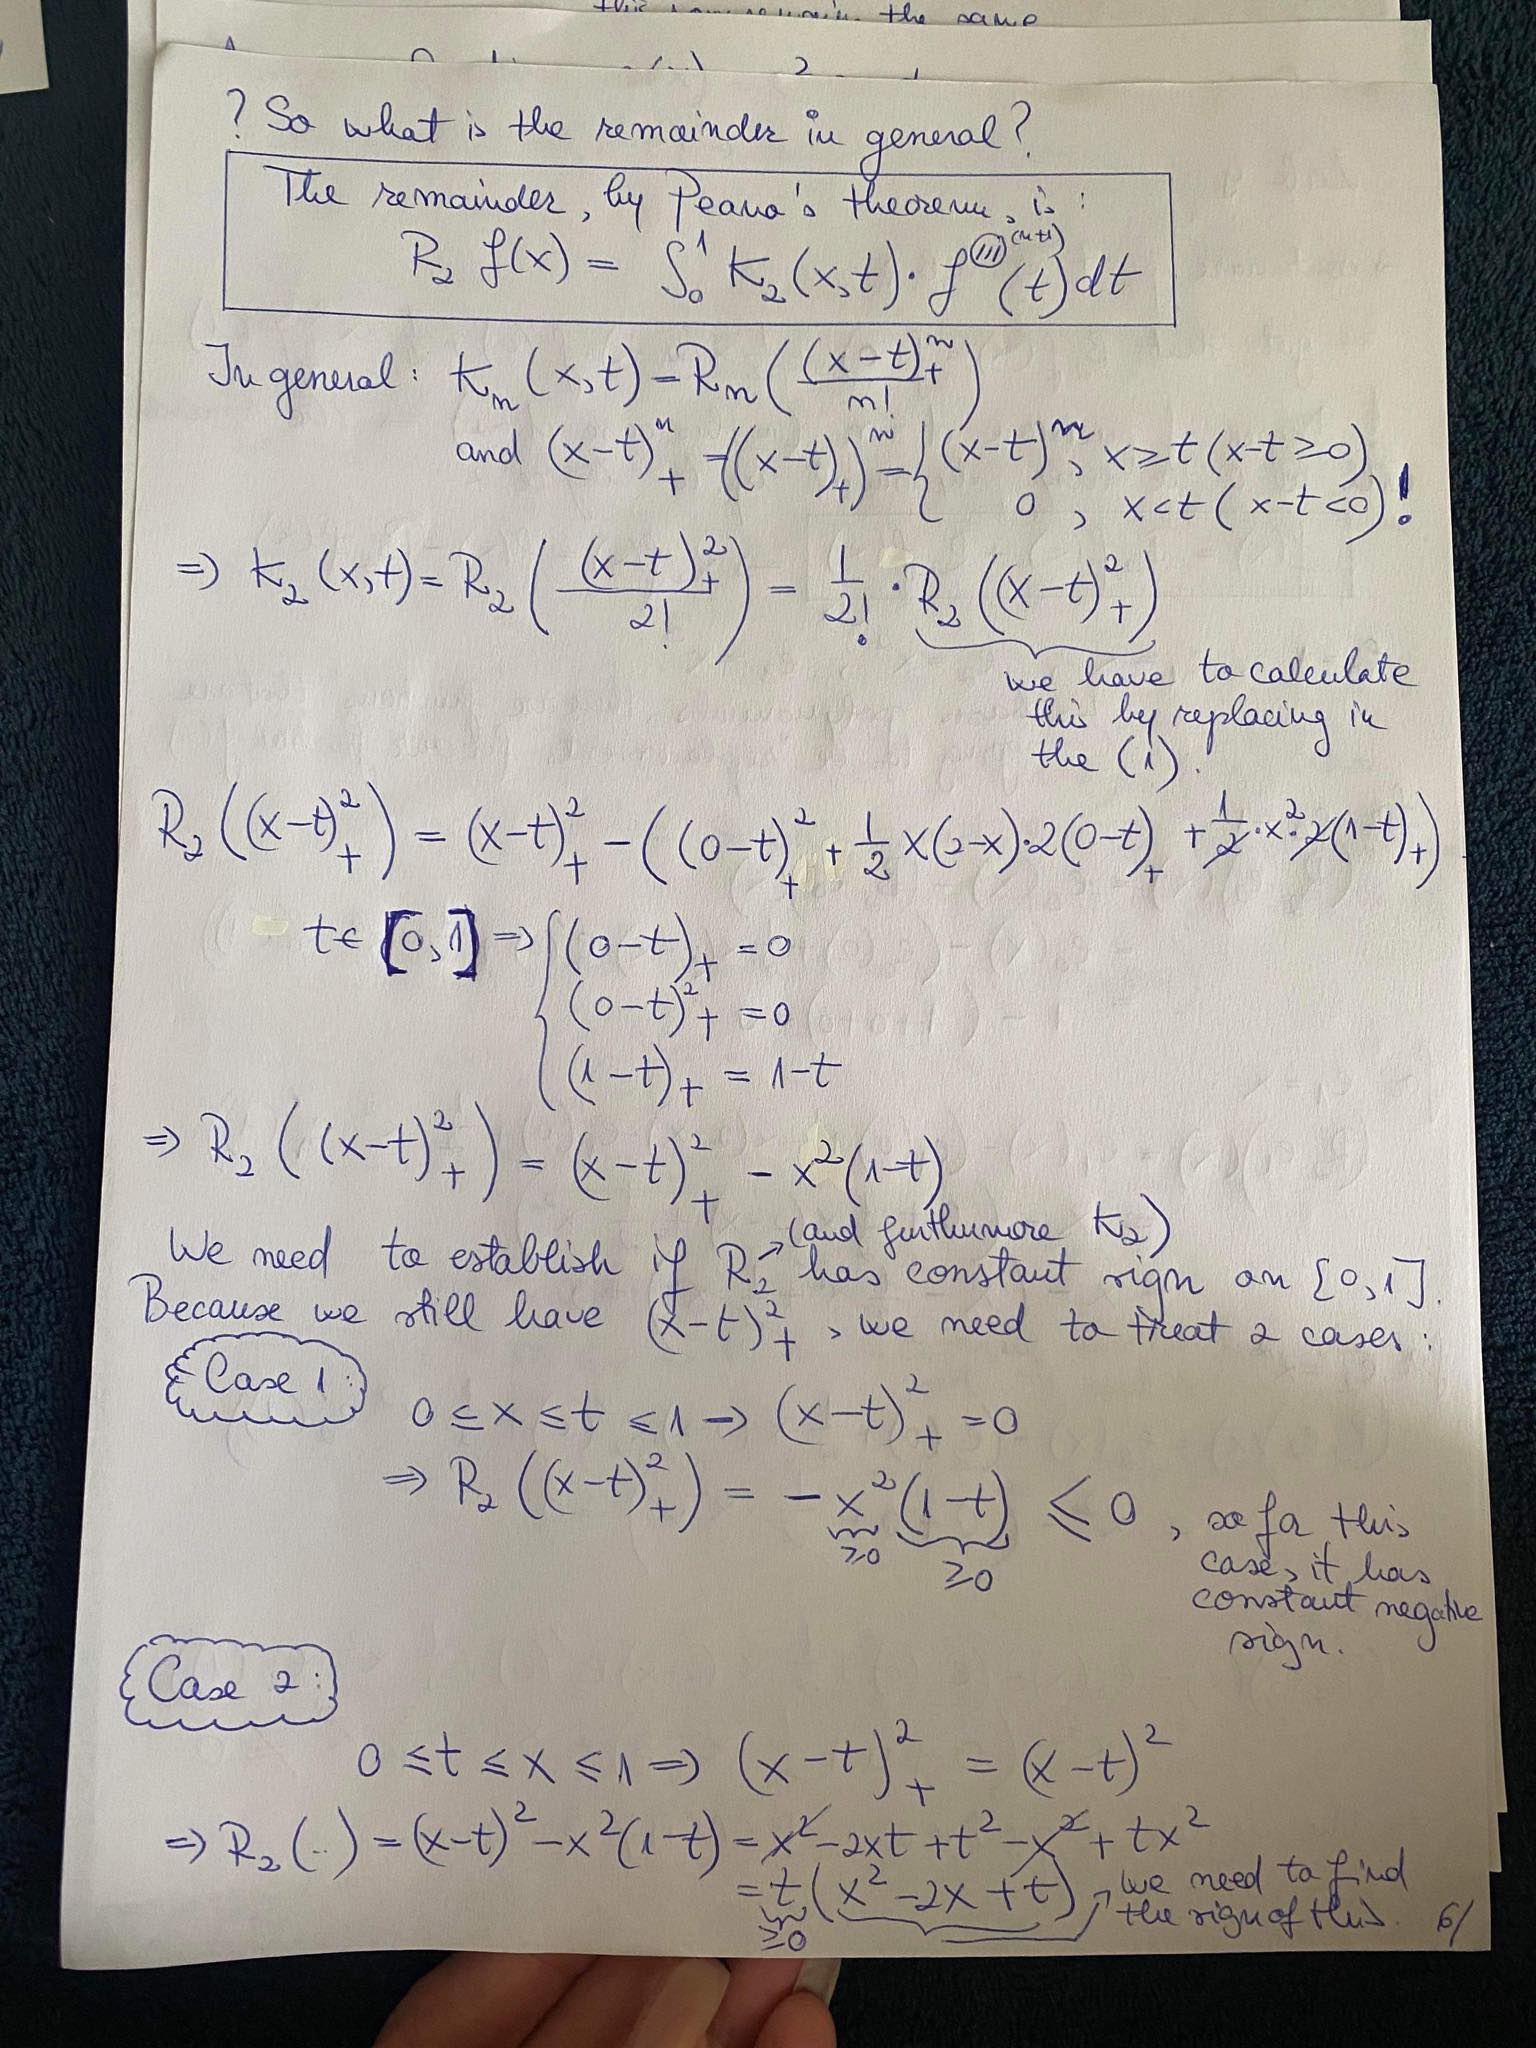 this remain the same
? So what is the remainder in general?
The remainder, by Peano's theorem, is:
R₂ f(x) = ∫₀¹ K₂(x,t) · f⁽ⁿ⁺¹⁾(t)dt
In general: Kₙ(x,t) = Rₙ((x-t)₊ⁿ / n!)
and (x-t)₊ⁿ = ((x-t)₊)ⁿ = { (x-t)ⁿ, x ≥ t (x-t ≥ 0)
0, x < t (x-t < 0) !
⇒ K₂(x,t) = R₂((x-t)₊² / 2!) = 1/2! · R₂((x-t)₊²)
we have to calculate
this by replacing in
the (1).
R₂((x-t)₊²) = (x-t)₊² - ((0-t)₊² + 1/2 x(2-x)·2(0-t)₊ + 1/2·x²·2(1-t)₊)
t ∈ [0,1] ⇒ { (0-t)₊ = 0
(0-t)₊² = 0
(1-t)₊ = 1-t
⇒ R₂((x-t)₊²) = (x-t)₊² - x²(1-t)
(and furthermore K₂)
We need to establish if R₂ → has constant sign on [0,1].
Because we still have (x-t)₊², we need to treat 2 cases:
Case 1:
0 ≤ x ≤ t ≤ 1 → (x-t)₊² = 0
⇒ R₂((x-t)₊²) = - x² (1-t) ≤ 0, so for this
≥0 ≥0 case, it has
constant negative
sign.
Case 2:
0 ≤ t ≤ x ≤ 1 ⇒ (x-t)₊² = (x-t)²
⇒ R₂(..) = (x-t)² - x²(1-t) = x² - 2xt + t² - x² + tx²
= t(x² - 2x + t) → we need to find
≥0 the sign of this. 6/